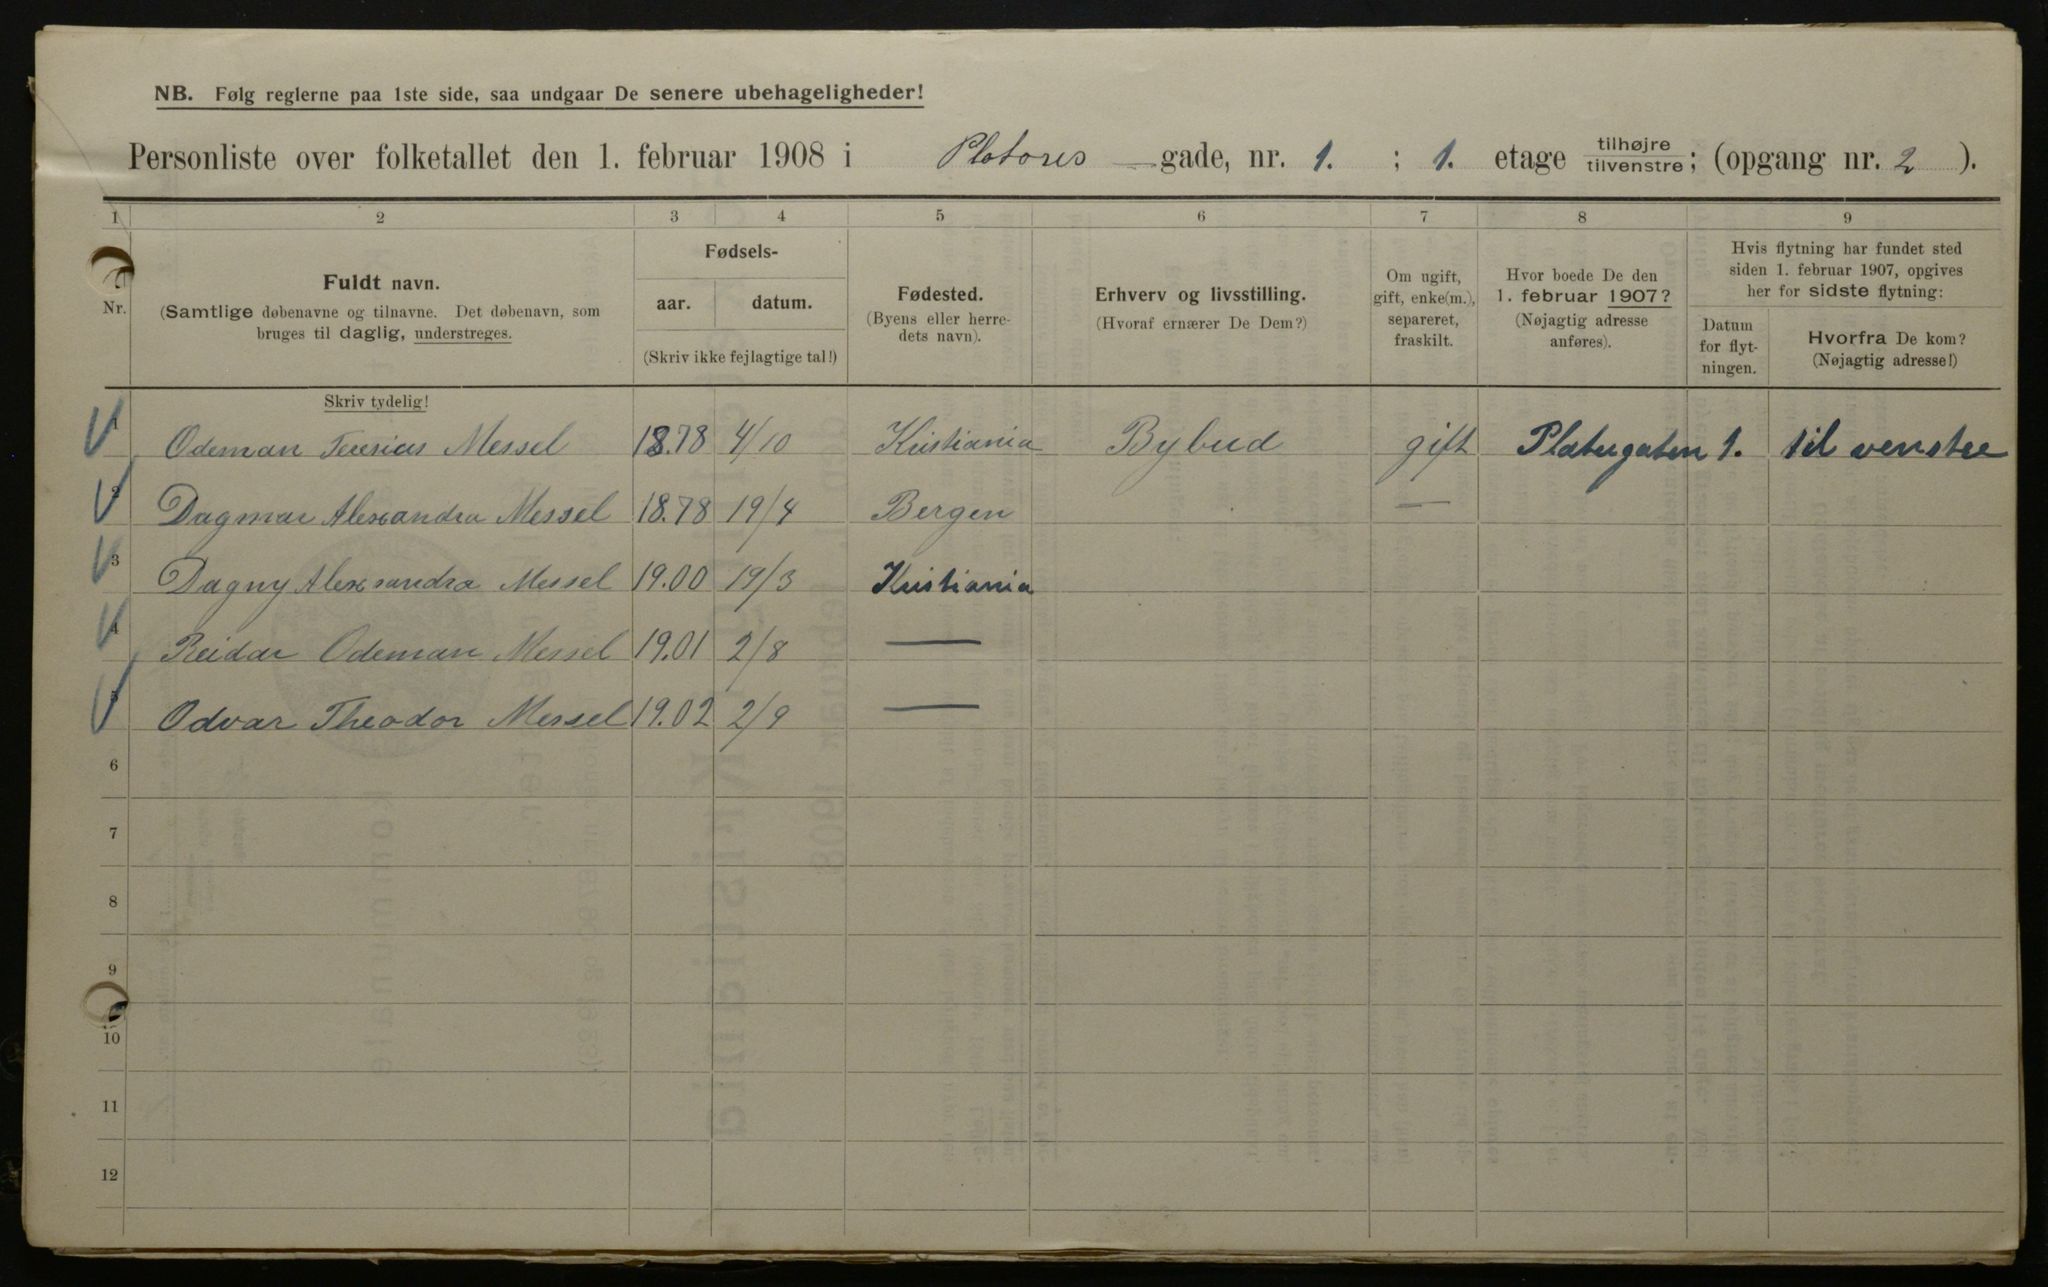 NB. Følg reglerne paa 1ste side, saa undgaar De senere ubehageligheder!
Personliste over folketallet den 1. februar 1908 i Platous gade, nr. 1. ; 1. etage tilhøjre tilvenstre; (opgang nr. 2 ).
1 2 3 4 5 6 7 8 9
Nr.
Fuldt navn.
(Samtlige døbenavne og tilnavne. Det døbenavn, som
bruges til daglig, understreges.
Skriv tydelig!
Fødsels-
aar. datum.
(Skriv ikke fejlagtige tal!)
Fødested.
(Byens eller herre-
dets navn).
Erhverv og livsstilling.
(Hvoraf ernærer De Dem?)
Om ugift,
gift, enke(m.),
separeret,
fraskilt.
Hvor boede De den
1. februar 1907?
(Nøjagtig adresse
anføres).
Hvis flytning har fundet sted
siden 1. februar 1907, opgives
her for sidste flytning:
Datum
for flyt-
ningen.
Hvorfra De kom?
(Nøjagtig adresse!)
1 Odeman Teresias Messel 18.78 4/10 Kristiania Bybud gift Platugaten 1. til venstre
2 Dagmar Alexandra Messel 18.78 19/4 Bergen —
3 Dagny Alexsandra Messel 19.00 19/3 Kristiania
4 Reidar Odeman Messel 19.01 2/8 —
5 Odvar Theodor Messel 19.02 2/9 —
6
7
8
9
10
11
12